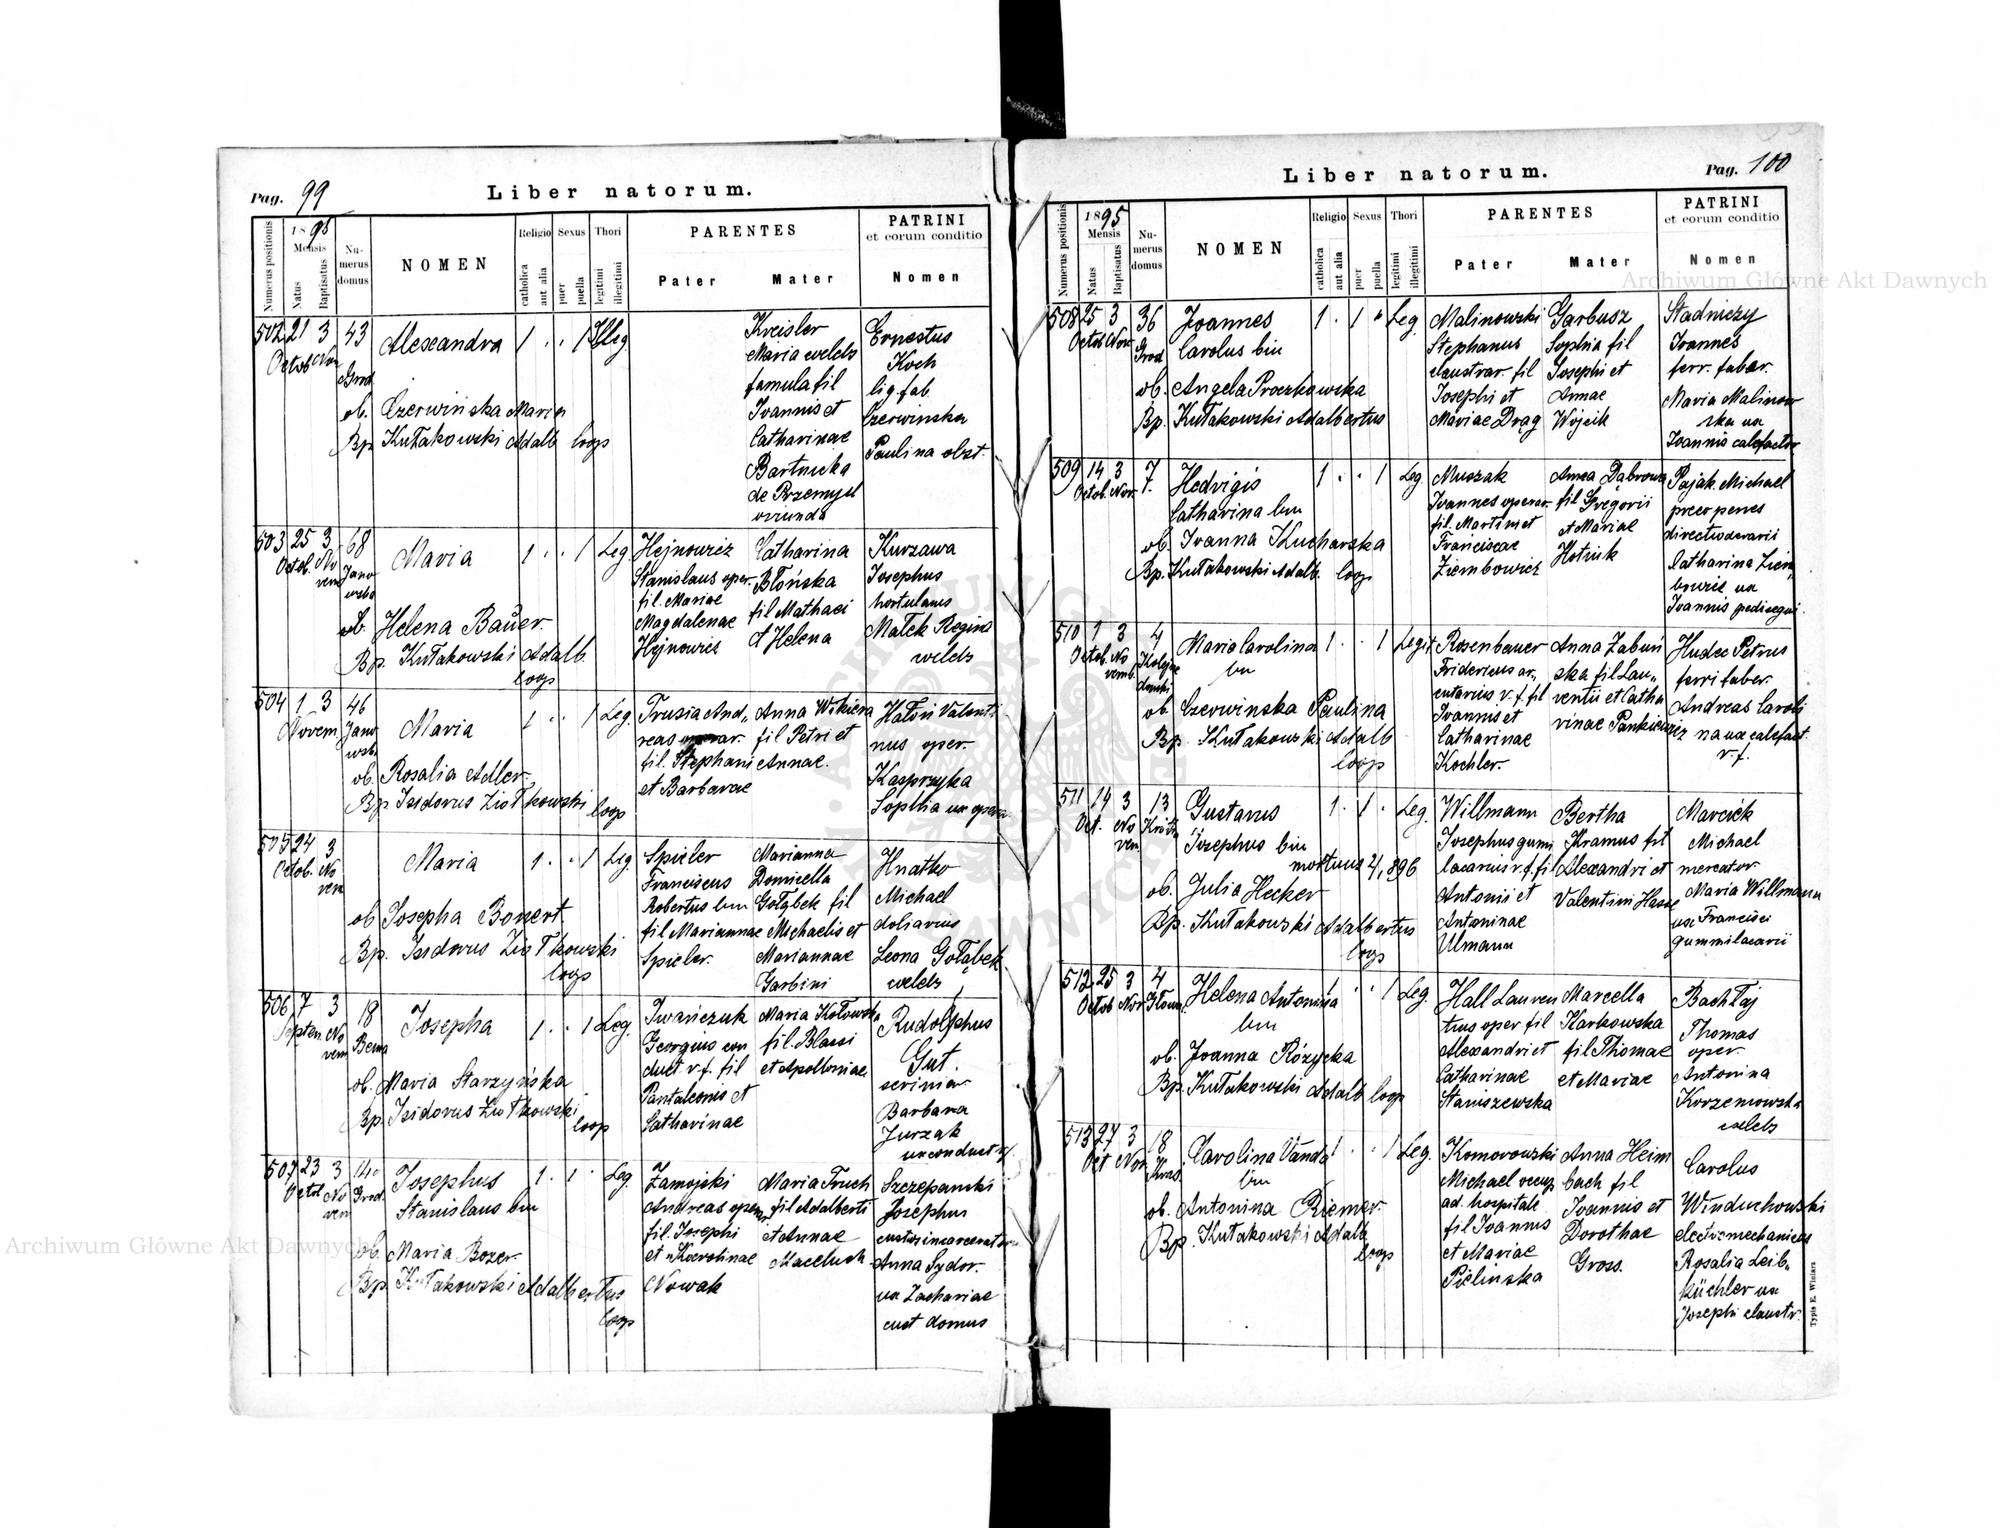 Pag. 99
Liber natorum.
Numerus positionis
1895
Mensis
Natus
Baptisatus
Nu-
merus
domus
NOMEN
Religio
catholica
aut alia
Sexus
puer
puella
Thori
legitimi
illegitimi
PARENTES
Pater
Mater
PATRINI
et eorum conditio
Nomen
502 21 3 43 Alexandra 1 . . 1 Illeg
Octob Nov
Grod
Kreisler
Maria caelebs
famula fil
Joannis et
Catharinae
Bartnicka
de Przemysl
oriunda
Ernestus
Koch
lig. fab.
Czerwinska
Paulina obst.
ob. Czerwińska Maria
Bp. Kułakowski Adalb coop
503 25 3 68 Maria 1 . . 1 Leg
Octob. No
vem
Jano
wska
Hejnowicz
Stanislaus oper.
fil. Mariae
Magdalenae
Hejnowicz
Catharina
Błońska
fil Mathaei
et Helena
Kurzawa
Josephus
hortulanus
Małek Regina
caelebs
ob. Helena Bauer.
Bp. Kułakowski Adalb.
coop
504 1 3 46 Maria 1 . . 1 Leg
Novem
Jano
wsk.
Trusia And„
reas operar.
fil. Stephani
et Barbarae
Anna
fil Petri et
Annae.
Hałoń Valenti
nus oper.
Kasprzyka
Sophia ux operar
ob. Rosalia Adler.
Bp. Isidorus Ziołkowski coop
505 24 3 Maria 1 . . 1 Leg
Octob. No
vem
Spieler
Franciscus
Robertus bin
fil Mariannae
Spieler.
Marianna
Domicella
Gołąbek fil
Michaelis et
Mariannae
Garbini
Hnatko
Michael
doliarius
Leona Gołąbek
caelebs
ob Josepha Bonert
Bp. Isidorus Ziołkowski
coop
506 7 3 18 Josepha 1 . . 1 Leg.
Septem. No
vem
Bema
Iwańczuk
Georgius con
duct v. f. fil
Pantaleonis et
Catharinae
Maria Kotowska
fil. Blasii
et Apolloniae
Rudolphus
Gut.
scriniar
Barbara
Jurzak
ux conduct vf
ob. Maria Starzyńska
Bp. Isidorus Ziołkowski
coop
507 23 3 140 Josephus 1 . 1 . Leg
Octob No
vem
Grod.
Stanislaus bin
Zamojski
Andreas operar
fil. Josephi
et Karolinae
Nowak
Maria Truch
fil Adalberti
et Annae
Maceluch
Szczepanski
Josephus
custos incarcerator
Anna Sydor.
ux Zachariae
cust domus
ob. Maria Bozer.
Bp. Kułakowski Adalbertus
coop
Pag. 100
Liber natorum.
Numerus positionis
1895
Mensis
Natus
Baptisatus
Nu-
merus
domus
NOMEN
Religio
catholica
aut alia
Sexus
puer
puella
Thori
legitimi
illegitimi
PARENTES
Pater
Mater
PATRINI
et eorum conditio
Nomen
508 25 3 36 Joannes 1 . 1 . Leg
Octob Nov
Grod
Carolus bin
Malinowski
Stephanus
claustrar. fil
Josephi et
Mariae Drąg
Garbusz
Sophia fil
Josephi et
Annae
Wójcik
Stadniczy
Joannes
ferr. faber.
Maria Malinow
ska ux
Joannis calefactor
ob. Angela Proczkowska
Bp. Kułakowski Adalbertus
509 14 3 7. Hedvigis 1 . . 1 Leg
Octob. Nov
Catharina bin
Muszak
Joannes operar.
fil. Martini et
Franciscae
Ziembowicz
Anna Dąbrowa
fil Gregorii
et Mariae
Hotiuk
Pająk Michael
Catharina Ziem
bowicz ux
Joannis pedisequi
ob. Joanna Kucharska
Bp. Kułakowski Adalb. coop
510 1 3 4 Maria Carolina 1 . . 1 Legit
Octob. No
vemb.
bin
Rosenbauer
Fridericus ar„
cularius v. f. fil
Joannis et
Catharinae
Kochler.
Anna Zaburi
ska fil Lau„
rentii et Catha
rinae Pankiewicz
Hudec Petrus
ferri faber.
Andreas Caroli
na ux calefact.
v. f.
ob Czerwinska Paulina
Bp. Kułakowski Adalb
coop
511 14 3 13 Gustavus 1 . 1 . Leg.
Oct. No
vem.
Josephus bin
mortuus 2/1 896
Willmann
Josephus gumi
lacarius v. f. fil
Antonii et
Antoninae
Ulmann
Bertha
Kramus fil
Alexandri et
Valentini Hasse
Marciek
Michael
mercator
Maria Willmann
ux Francisci
gummilacarii
ob. Julia Hecker
Bp. Kułakowski Adalbertus
coop
512 25 3 4 Helena Antonina 1 . . 1 Leg
Octob Nov
bin
Hall Lauren
tius oper fil
Alexandri et
Catharinae
Staniszewska
Marcella
Karkowska
fil Thomae
et Mariae
Bachłaj
Thomas
oper.
Antonina
Korzeniowska
caelebs
ob. Joanna Różycka
Bp. Kułakowski Adalb coop
513 27 3 18 Carolina Vanda 1 . . 1 Leg.
Oct Nov
bin
Komorowski
Michael occup
ad. hospitale
fil Joannis
et Mariae
Pielinska
Anna Heim
bach fil
Joannis et
Dorothae
Gross.
Carolus
Winduchowski
electromechanicus
Rosalia Leib„
küchler ux
Josephi claustr.
ob. Antonina Riemer.
Bp. Kułakowski Adalb
coop
Typis E. Winiarz
Archiwum Główne Akt Dawnych
Archiwum Główne Akt Dawnych